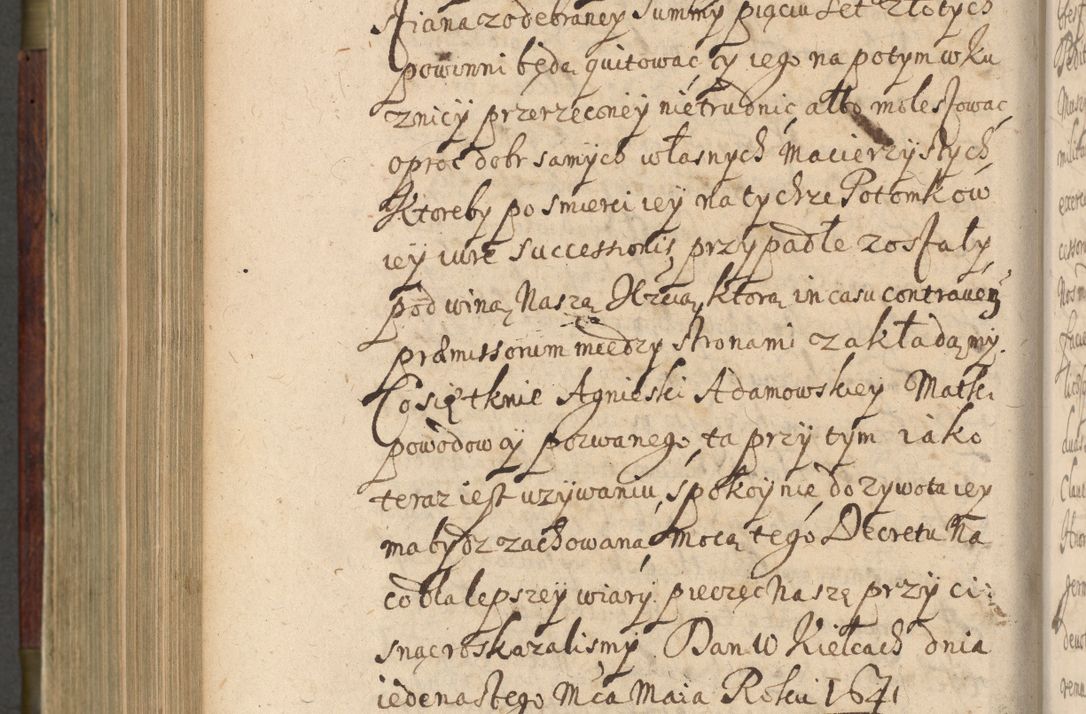 stiana z odebraney Summy pięciu Set Złotych
powinni będą quitować y iego na potym w ku
znicy przerzeconey nietrudnic albo molestowac
oproc dobr samych własnych Macierzystych
Ktoreby po smierci iey na tychze Potomkow
iey iure Successionis przypadłe zostały
pod winą Naszą ktorą in casu contrauen
præmissorum miedzy stronami zakładamy.
Co się tknie Agnieski Adamowskiey Matki
powodow y pozwanego, ta przy tym iako
teraz iest uzywaniu, spokoynie dozywota iey
ma bydz zachowana mocą tego Decretu Na
co dla lepszey wiary pieczęc naszę przyci:
snąc roskazalismy Dan w Kielcach dnia
iedenastego Mca Maia Roku 1641